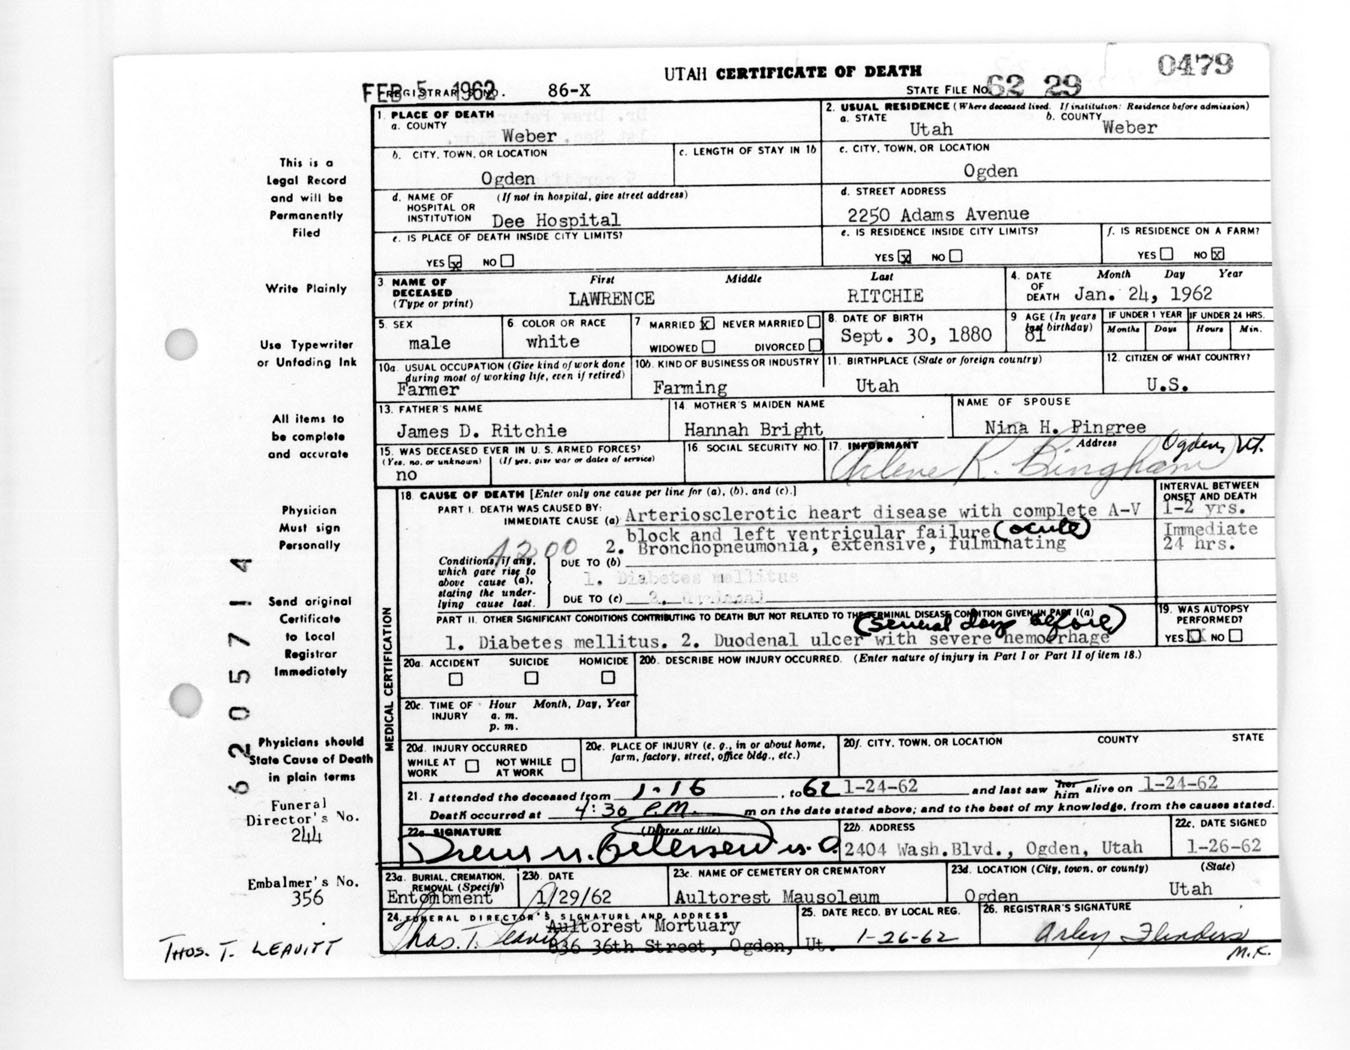 0479
UTAH CERTIFICATE OF DEATH
FEB 5 1962
REGISTRAR'S NO. 86-X
STATE FILE NO. 62 29
This is a
Legal Record
and will be
Permanently
Filed
Write Plainly
Use Typewriter
or Unfading Ink
All items to
be complete
and accurate
Physician
Must sign
Personally
Send original
Certificate
to Local
Registrar
Immediately
Physicians should
State Cause of Death
in plain terms
Funeral
Director's No.
244
Embalmer's No.
356
THOS. T. LEAVITT
6205714
1. PLACE OF DEATH
a. COUNTY
Weber
2. USUAL RESIDENCE (Where deceased lived. If institution: Residence before admission)
a. STATE b. COUNTY
Utah Weber
b. CITY, TOWN, OR LOCATION
Ogden
c. LENGTH OF STAY IN 1b
c. CITY, TOWN, OR LOCATION
Ogden
d. NAME OF (If not in hospital, give street address)
HOSPITAL OR
INSTITUTION Dee Hospital
d. STREET ADDRESS
2250 Adams Avenue
e. IS PLACE OF DEATH INSIDE CITY LIMITS?
YES X NO
e. IS RESIDENCE INSIDE CITY LIMITS?
YES X NO
f. IS RESIDENCE ON A FARM?
YES NO X
3 NAME OF
DECEASED
(Type or print)
First Middle Last
LAWRENCE RITCHIE
4. DATE
OF
DEATH
Month Day Year
Jan. 24, 1962
5. SEX
male
6 COLOR OR RACE
white
7 MARRIED X NEVER MARRIED
WIDOWED DIVORCED
8. DATE OF BIRTH
Sept. 30, 1880
9 AGE (In years
last birthday)
81
IF UNDER 1 YEAR
Months Days
IF UNDER 24 HRS.
Hours Min.
10a. USUAL OCCUPATION (Give kind of work done
during most of working life, even if retired)
Farmer
10b. KIND OF BUSINESS OR INDUSTRY
Farming
11. BIRTHPLACE (State or foreign country)
Utah
12. CITIZEN OF WHAT COUNTRY?
U.S.
13. FATHER'S NAME
James D. Ritchie
14 MOTHER'S MAIDEN NAME
Hannah Bright
NAME OF SPOUSE
Nina H. Pingree
15. WAS DECEASED EVER IN U. S. ARMED FORCES?
(Yes, no, or unknown) (If yes, give war or dates of service)
no
16 SOCIAL SECURITY NO.
17. INFORMANT Address
Arlene R. Bingham Ogden, Ut.
MEDICAL CERTIFICATION
18. CAUSE OF DEATH [Enter only one cause per line for (a), (b), and (c).]
INTERVAL BETWEEN
ONSET AND DEATH
PART I. DEATH WAS CAUSED BY:
IMMEDIATE CAUSE (a) Arteriosclerotic heart disease with complete A-V 1-2 yrs.
block and left ventricular failure (acute) Immediate
4200 2. Bronchopneumonia, extensive, fulminating 24 hrs.
Conditions, if any,
which gave rise to
above cause (a),
stating the under-
lying cause last.
DUE TO (b)
1. Diabetes mellitus
DUE TO (c)
PART II. OTHER SIGNIFICANT CONDITIONS CONTRIBUTING TO DEATH BUT NOT RELATED TO THE TERMINAL DISEASE CONDITION GIVEN IN PART I(a)
(several days before)
1. Diabetes mellitus. 2. Duodenal ulcer with severe hemorrhage
19. WAS AUTOPSY
PERFORMED?
YES X NO
20a. ACCIDENT SUICIDE HOMICIDE
20b. DESCRIBE HOW INJURY OCCURRED. (Enter nature of injury in Part I or Part II of item 18.)
20c. TIME OF INJURY
Hour Month, Day, Year
a. m.
p. m.
20d. INJURY OCCURRED
WHILE AT WORK NOT WHILE AT WORK
20e. PLACE OF INJURY (e. g., in or about home,
farm, factory, street, office bldg., etc.)
20f. CITY, TOWN, OR LOCATION COUNTY STATE
21. I attended the deceased from 1-16, to 62 1-24-62 and last saw her him alive on 1-24-62
Death occurred at 4:30 P.M. m on the date stated above; and to the best of my knowledge, from the causes stated.
22a. SIGNATURE (Degree or title)
Drew M. Petersen M.D.
22b. ADDRESS
2404 Wash.Blvd., Ogden, Utah
22c. DATE SIGNED
1-26-62
23a. BURIAL, CREMATION,
REMOVAL (Specify)
Entombment
23b. DATE
1/29/62
23c. NAME OF CEMETERY OR CREMATORY
Aultorest Mausoleum
23d. LOCATION (City, town, or county) (State)
Ogden Utah
24. FUNERAL DIRECTOR'S SIGNATURE AND ADDRESS
Thos. T. Leavitt Aultorest Mortuary
836 36th Street, Ogden, Ut.
25. DATE RECD. BY LOCAL REG.
1-26-62
26. REGISTRAR'S SIGNATURE
Arley Flinders
M.K.